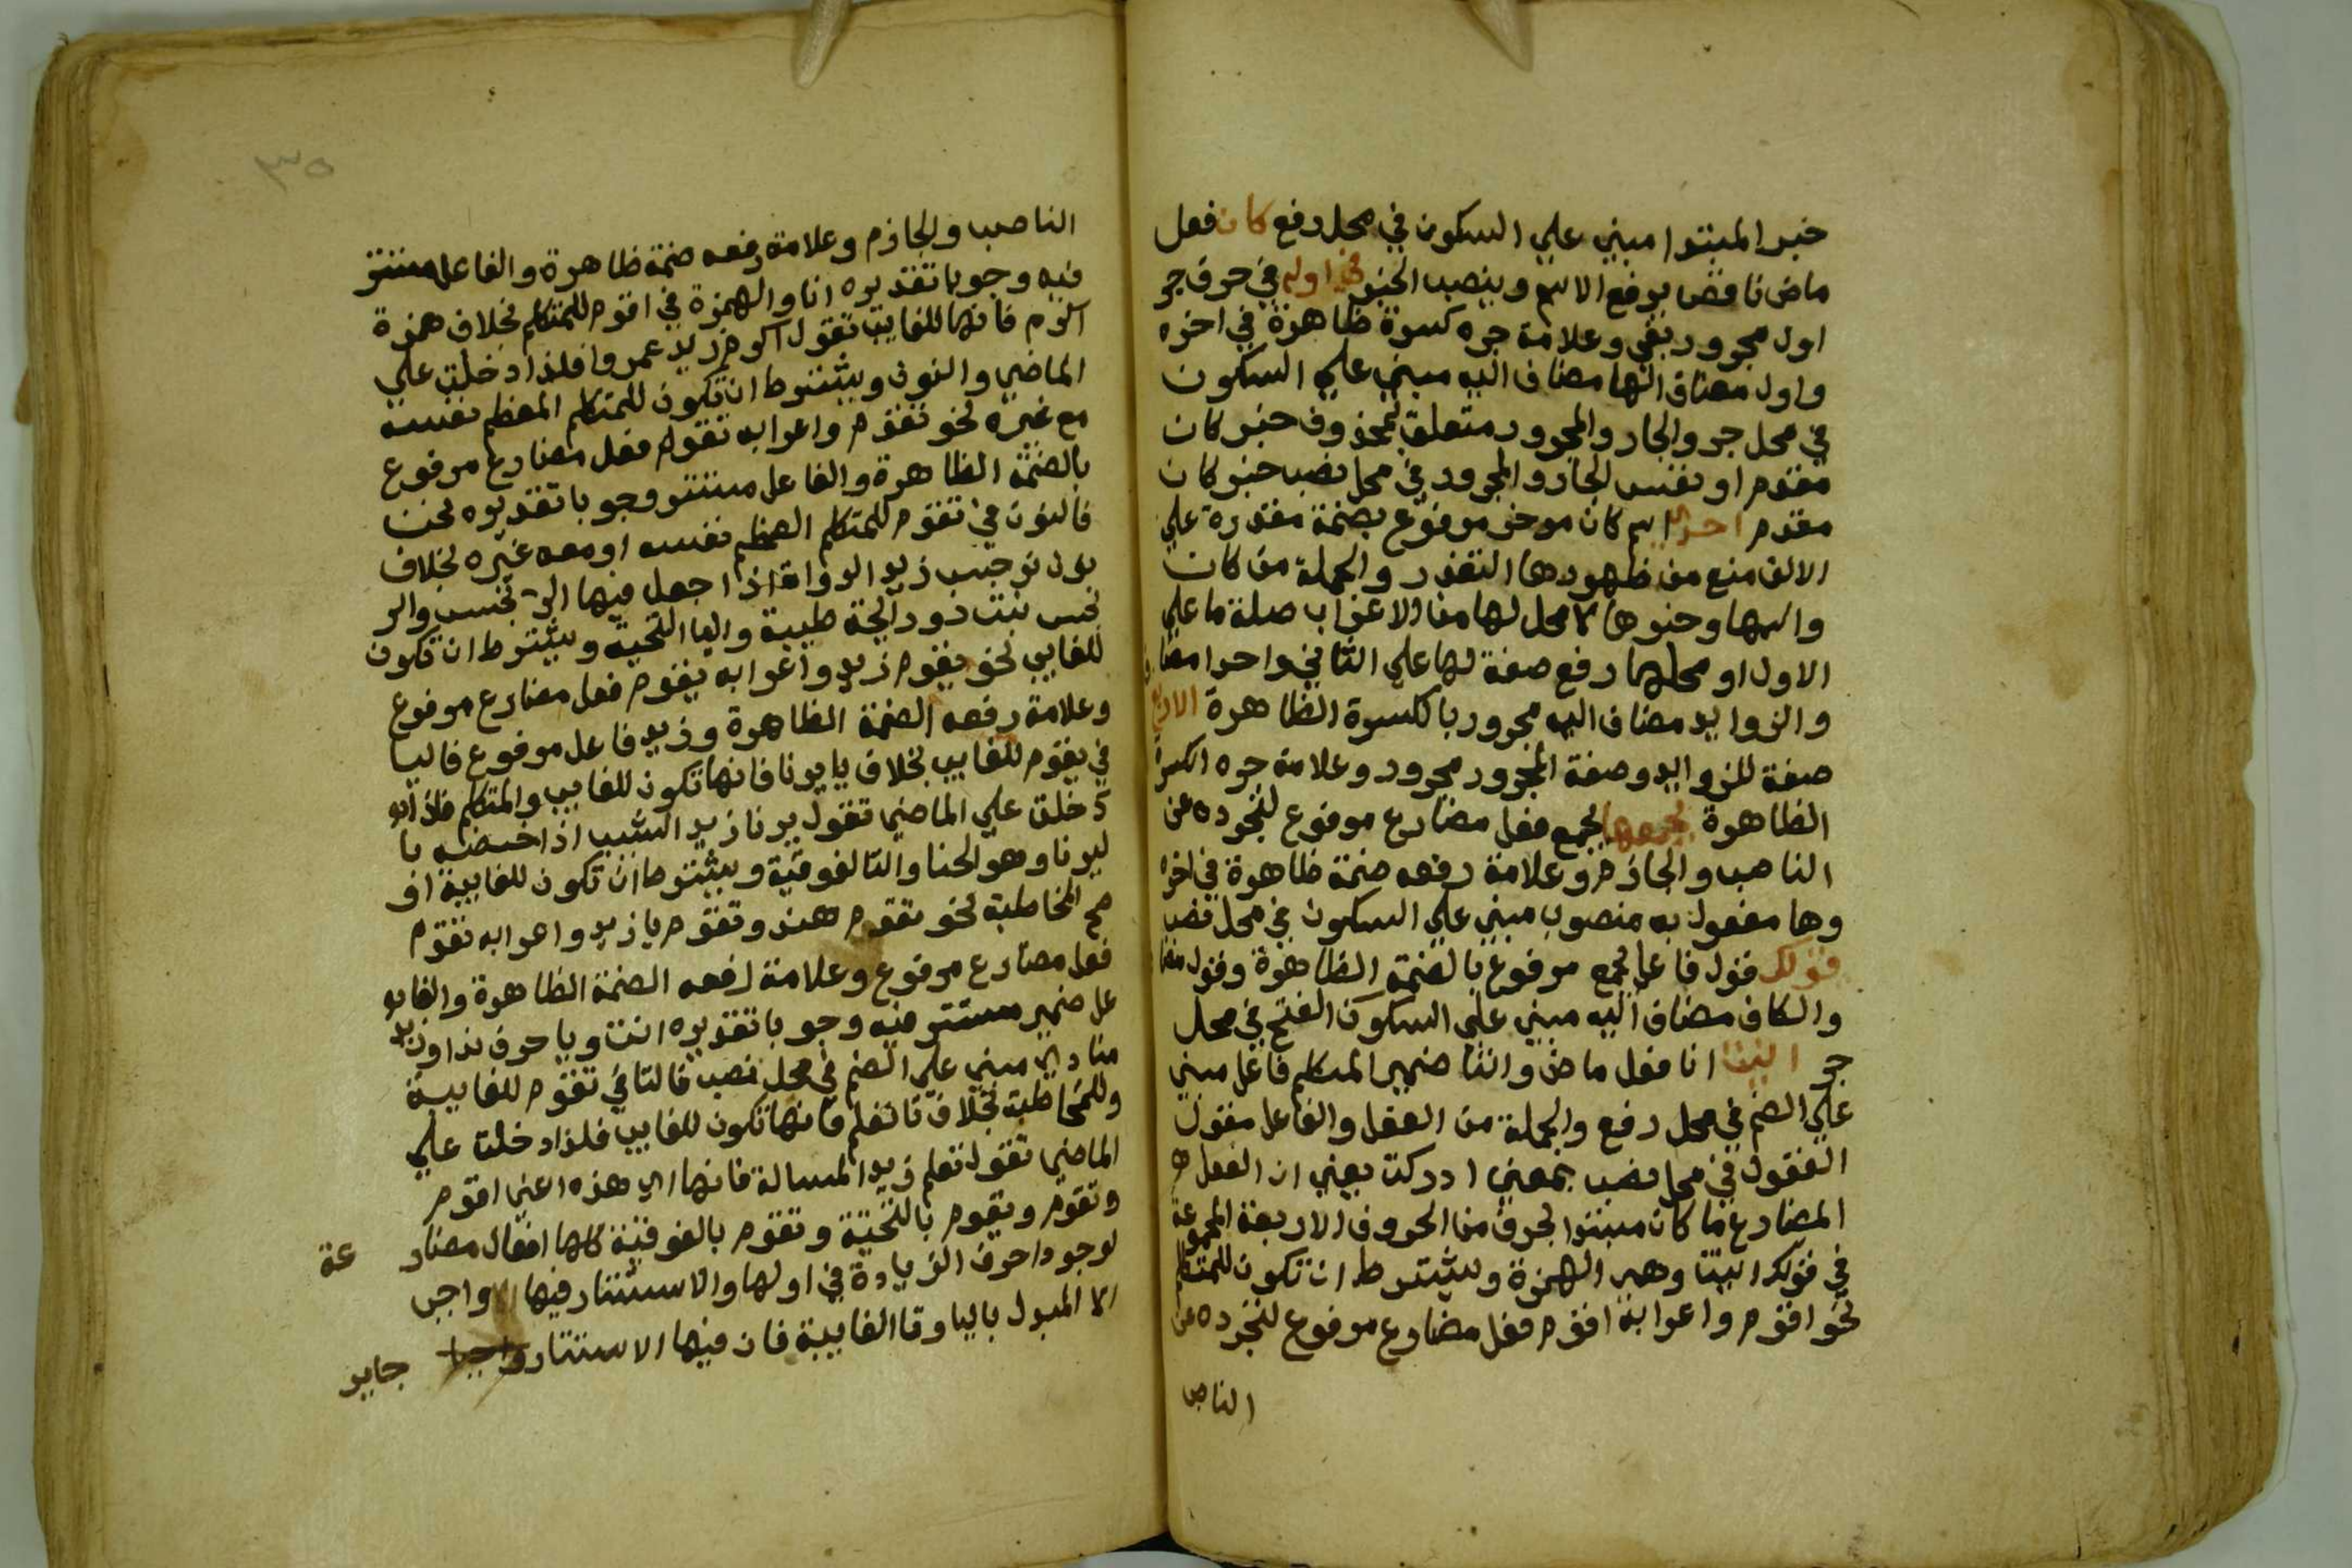 خبر المبتدا مبني علي السكون في محل رفع كان فعل
ماض ناقص يرفع الاسم وينصب الخبر في اوله في حرف جر
اول مجرور بفي وعلامة جره كسرة ظاهرة في اخره
واول مضاف الها مضاف اليه مبني علي السكون
في محل جر والجار والمجرور متعلق بمحذوف خبر كان
مقدم او نفس الجار والمجرور في محل نصب خبر كان
مقدم احدي اسم كان موخر مرفوع بضمة مقدرة علي
الالف منع من ظهورها التعذر والجملة من كان
واسمها وخبرها لا محل لها من الاعراب صلة ما علي
الاول او محلها رفع صفة لها علي الثاني واحدا مضاف
والزوايد مضاف اليه مجرور بالكسرة الظاهرة الاربع
صفة للزوايد وصفة المجرور مجرور وعلامة جره الكسرة
الظاهرة يجمعها يجمع فعل مضارع مرفوع لتجرده عن
الناصب والجازم وعلامة رفعه ضمة ظاهرة في اخره
وها مفعول به منصوب مبني علي السكون في محل نصب
قولك قول فاعل يجمع مرفوع بالضمة الظاهرة وقول مضا
والكاف مضاف اليه مبني علي السكون الفتح في محل
جر انيت انا فعل ماض وانتا ضمير المتكلم فاعل مبني
علي الضم في محل رفع والجملة من الفعل والفاعل مقول
القول في محل نصب بمعني ادركت يعني ان الفعل
المضارع ما كان مبتدا بحرف من الحروف الاربعة المجموعة
في قولك انيت وهي الهمزة ويشترط ان تكون للمتكلم
نحو اقوم واعرابه اقوم فعل مضارع مرفوع لتجرده عن
الناص
٣٥
الناصب والجازم وعلامة رفعه ضمة ظاهرة والفاعل مستتر
فيه وجوبا تقديره انا والهمزة في اقوم للمتكلم بخلاف همزة
اكرم فانها للغايب تقول اكرم زيد عمروا فلذا دخلت علي
الماضي والنون ويشترط ان تكون للمتكلم المعظم نفسه
مع غيره نحو نقوم واعرابه نقوم فعل مضارع مرفوع
بالضمة الظاهرة والفاعل مستتر وجوبا تقديره نحن
فالنون في نقوم للمتكلم المعظم نفسه او معه غيره بخلاف
نون نرجس زيد الدواة اذا جعل فيها النرجس والنر
نجس نبت ذو رايحة طيبة واليا التحية ويشترط ان تكون
للغايب نحو يقوم زيد واعرابه يقوم فعل مضارع مرفوع
وعلامة رفعه الضمة الظاهرة وزيد فاعل مرفوع فاليا
في يقوم للغايب بخلاف يا يرنا فانها تكون للغايب والمتكلم فلذا
دخلت علي الماضي تقول يرنا زيد الشيب اذا خضبه با
ليرنا وهو الحنا والتا الفوقية ويشترط ان تكون للغايبة او
صح المخاطبة نحو تقوم هند وتقوم يا زيد واعرابه تقوم
فعل مضارع مرفوع وعلامة رفعه الضمة الظاهرة والفا
عل ضمير مستتر فيه وجوبا تقديره انت ويا حرف ندا وزيد
منادي مبني علي الضم في محل نصب فالتا في تقوم للغايبة
وللمخاطبة بخلاف تا تعلم فانها تكون للغايب فلذا دخلت علي
الماضي تقول تعلم زيد المسالة فانها اي هذه اعني اقوم
ونقوم ويقوم بالتحية وتقوم بالفوقية كلها افعال مضار عة
لوجود احرف الزيادة في اولها والاستتار فيها واجب
الا المبدل باليا وتا الغايبة فان فيها الاستتار واجبا جايز